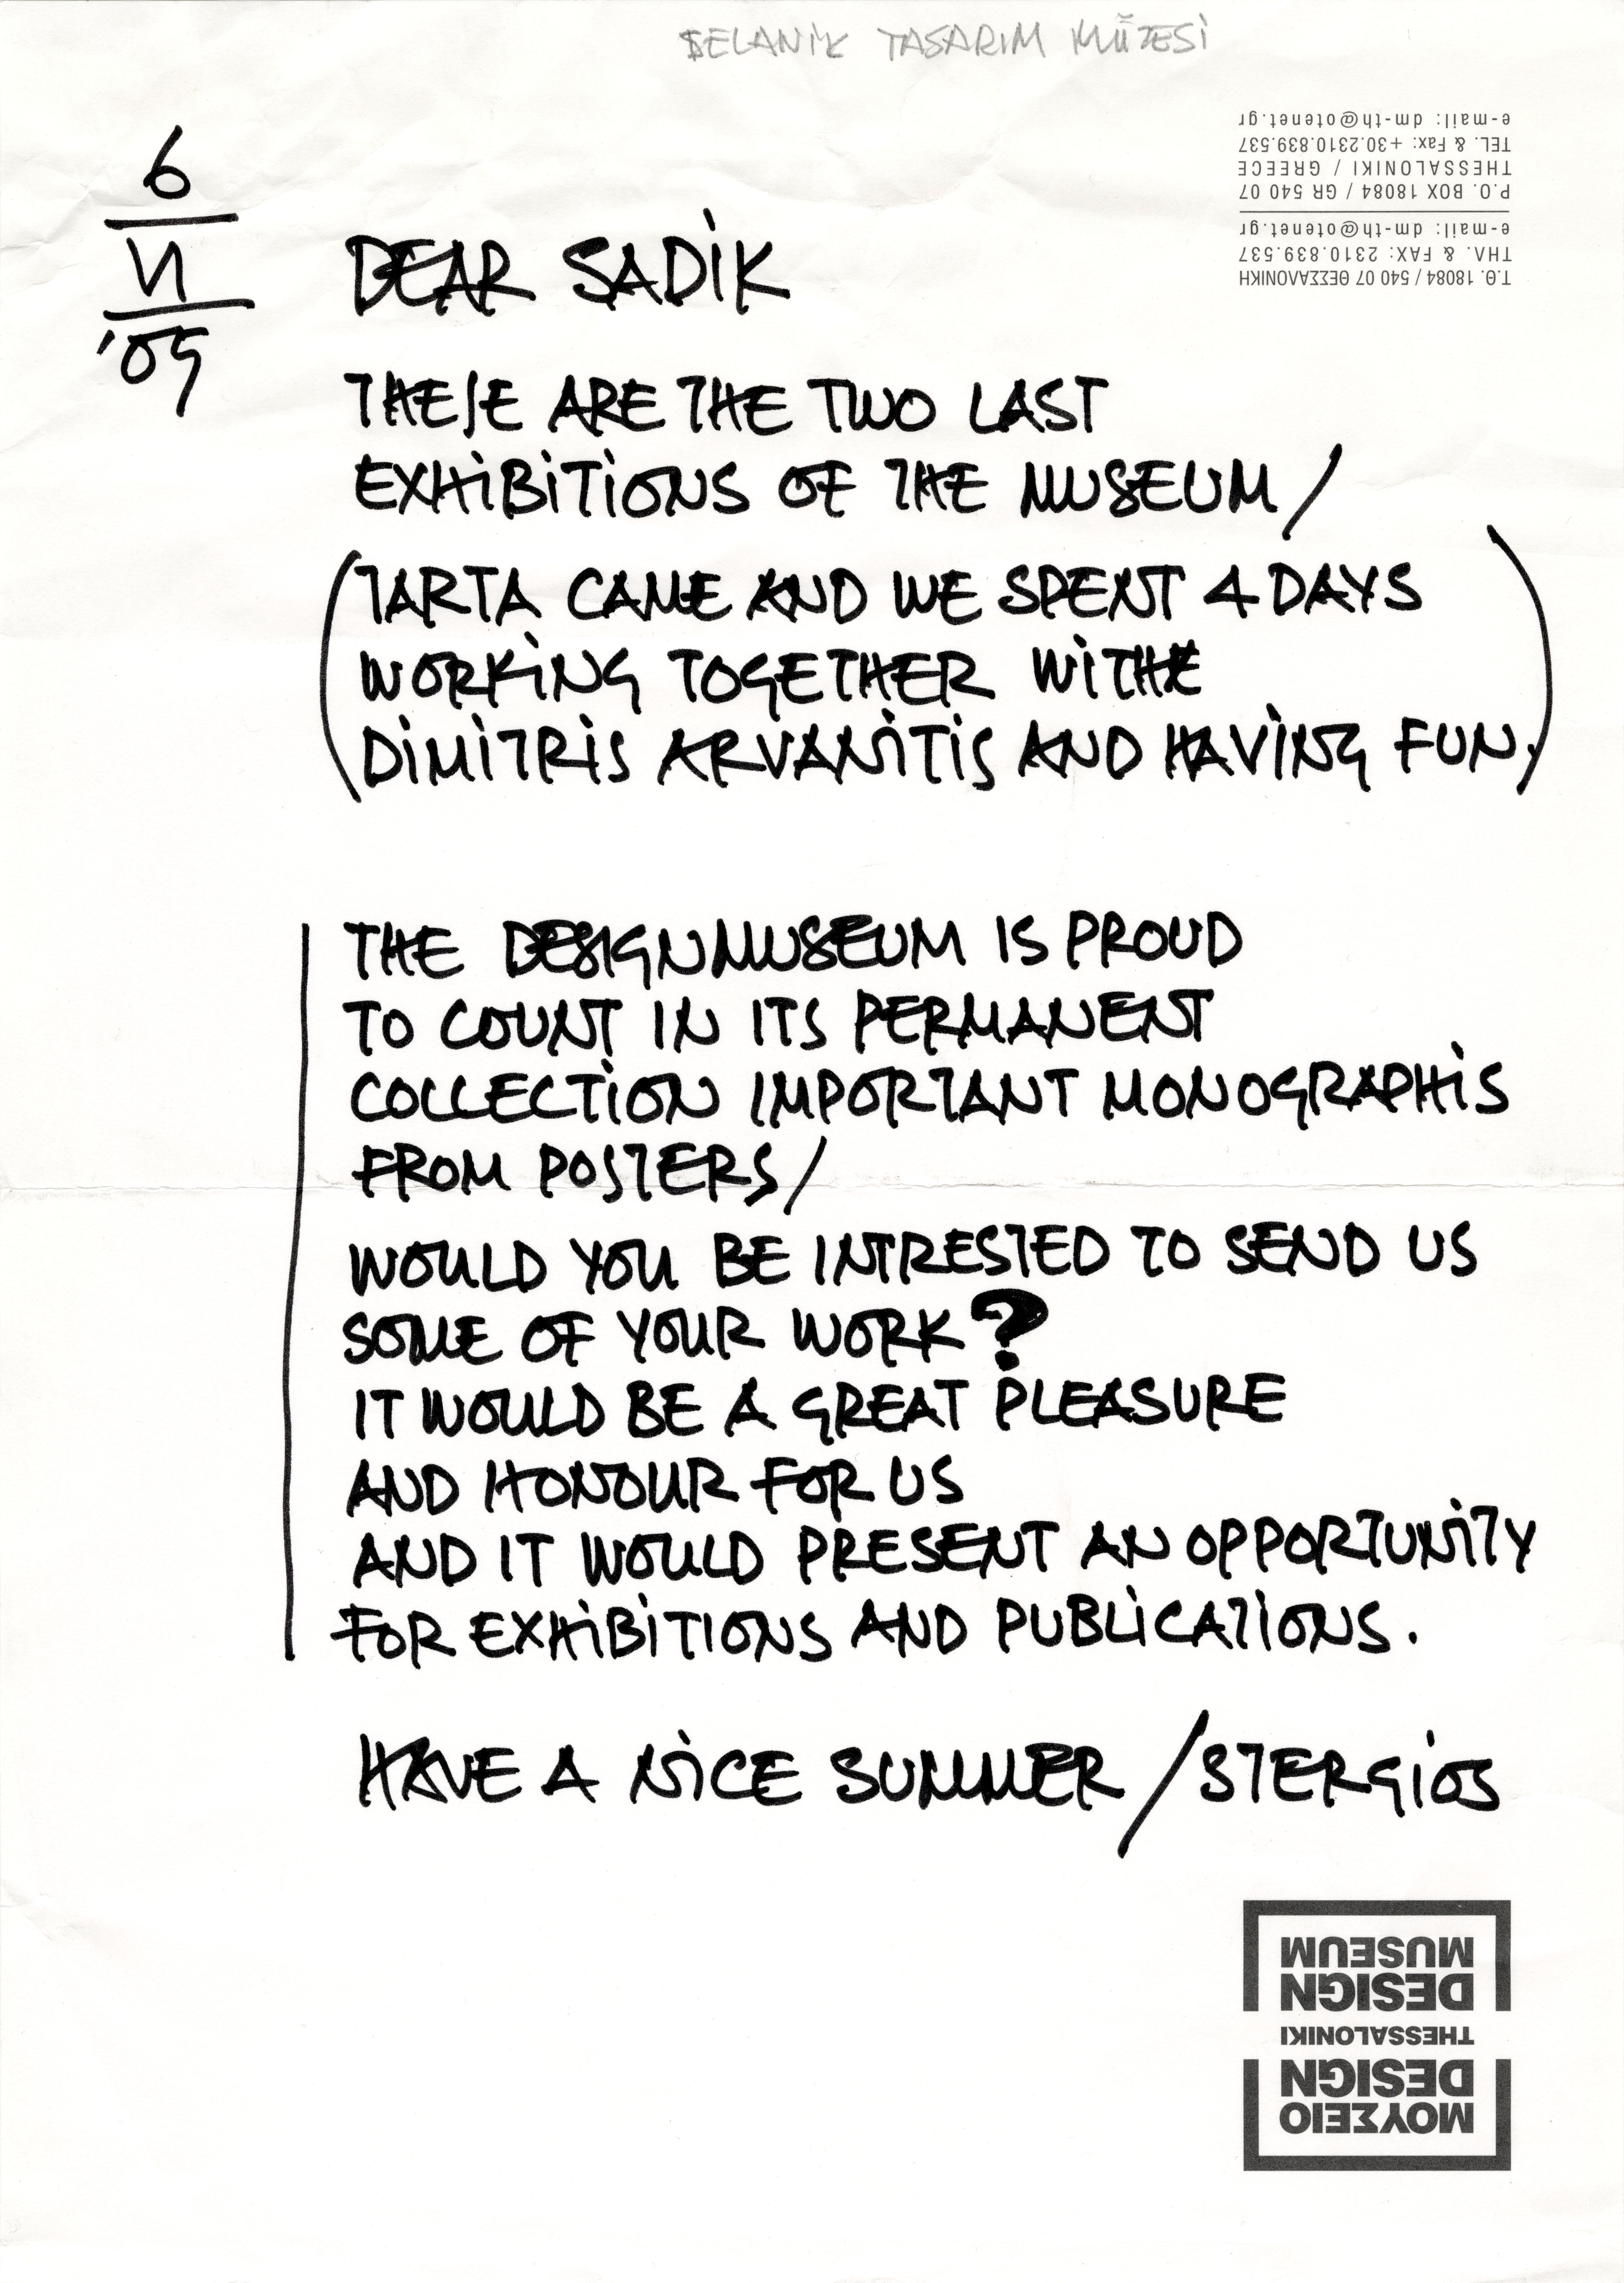 SELANİK TASARIM MÜZESİ
e-mail: dm-th@otenet.gr
TEL. & Fax: +30.2310.839.537
THESSALONIKI / GREECE
P.O. BOX 18084 / GR 540 07
e-mail: dm-th@otenet.gr
ΤΗΛ. & FAX: 2310.839.537
Τ.Θ. 18084 / 540 07 ΘΕΣΣΑΛΟΝΙΚΗ
6
VI
'05
DEAR SADiK
THESE ARE THE TWO LAST
EXHiBiTiONS OF THE MUSEUM/
(TARTA CAME AND WE SPENT 4 DAYS
WORKiNG TOGETHER WiTH
DiMiTRiS ARVANiTiS AND HAViNG FUN,)
THE DESIGNMUSEUM IS PROUD
TO COUNT IN ITS PERMANENT
COLLECTiON IMPORTANT MONOGRAPHiS
FROM POSTERS/
WOULD YOU BE INTRESTED TO SEND US
SOME OF YOUR WORK?
IT WOULD BE A GREAT PLEASURE
AND HONOUR FOR US
AND IT WOULD PRESENT AN OPPORTUNiTY
FOR EXHiBiTIONS AND PUBLiCATiONS.
HAVE A NiCE SUMMER/STERGiOS
MUSEUM
DESIGN
THESSALONIKI
DESIGN
ΜΟΥΣΕΙΟ